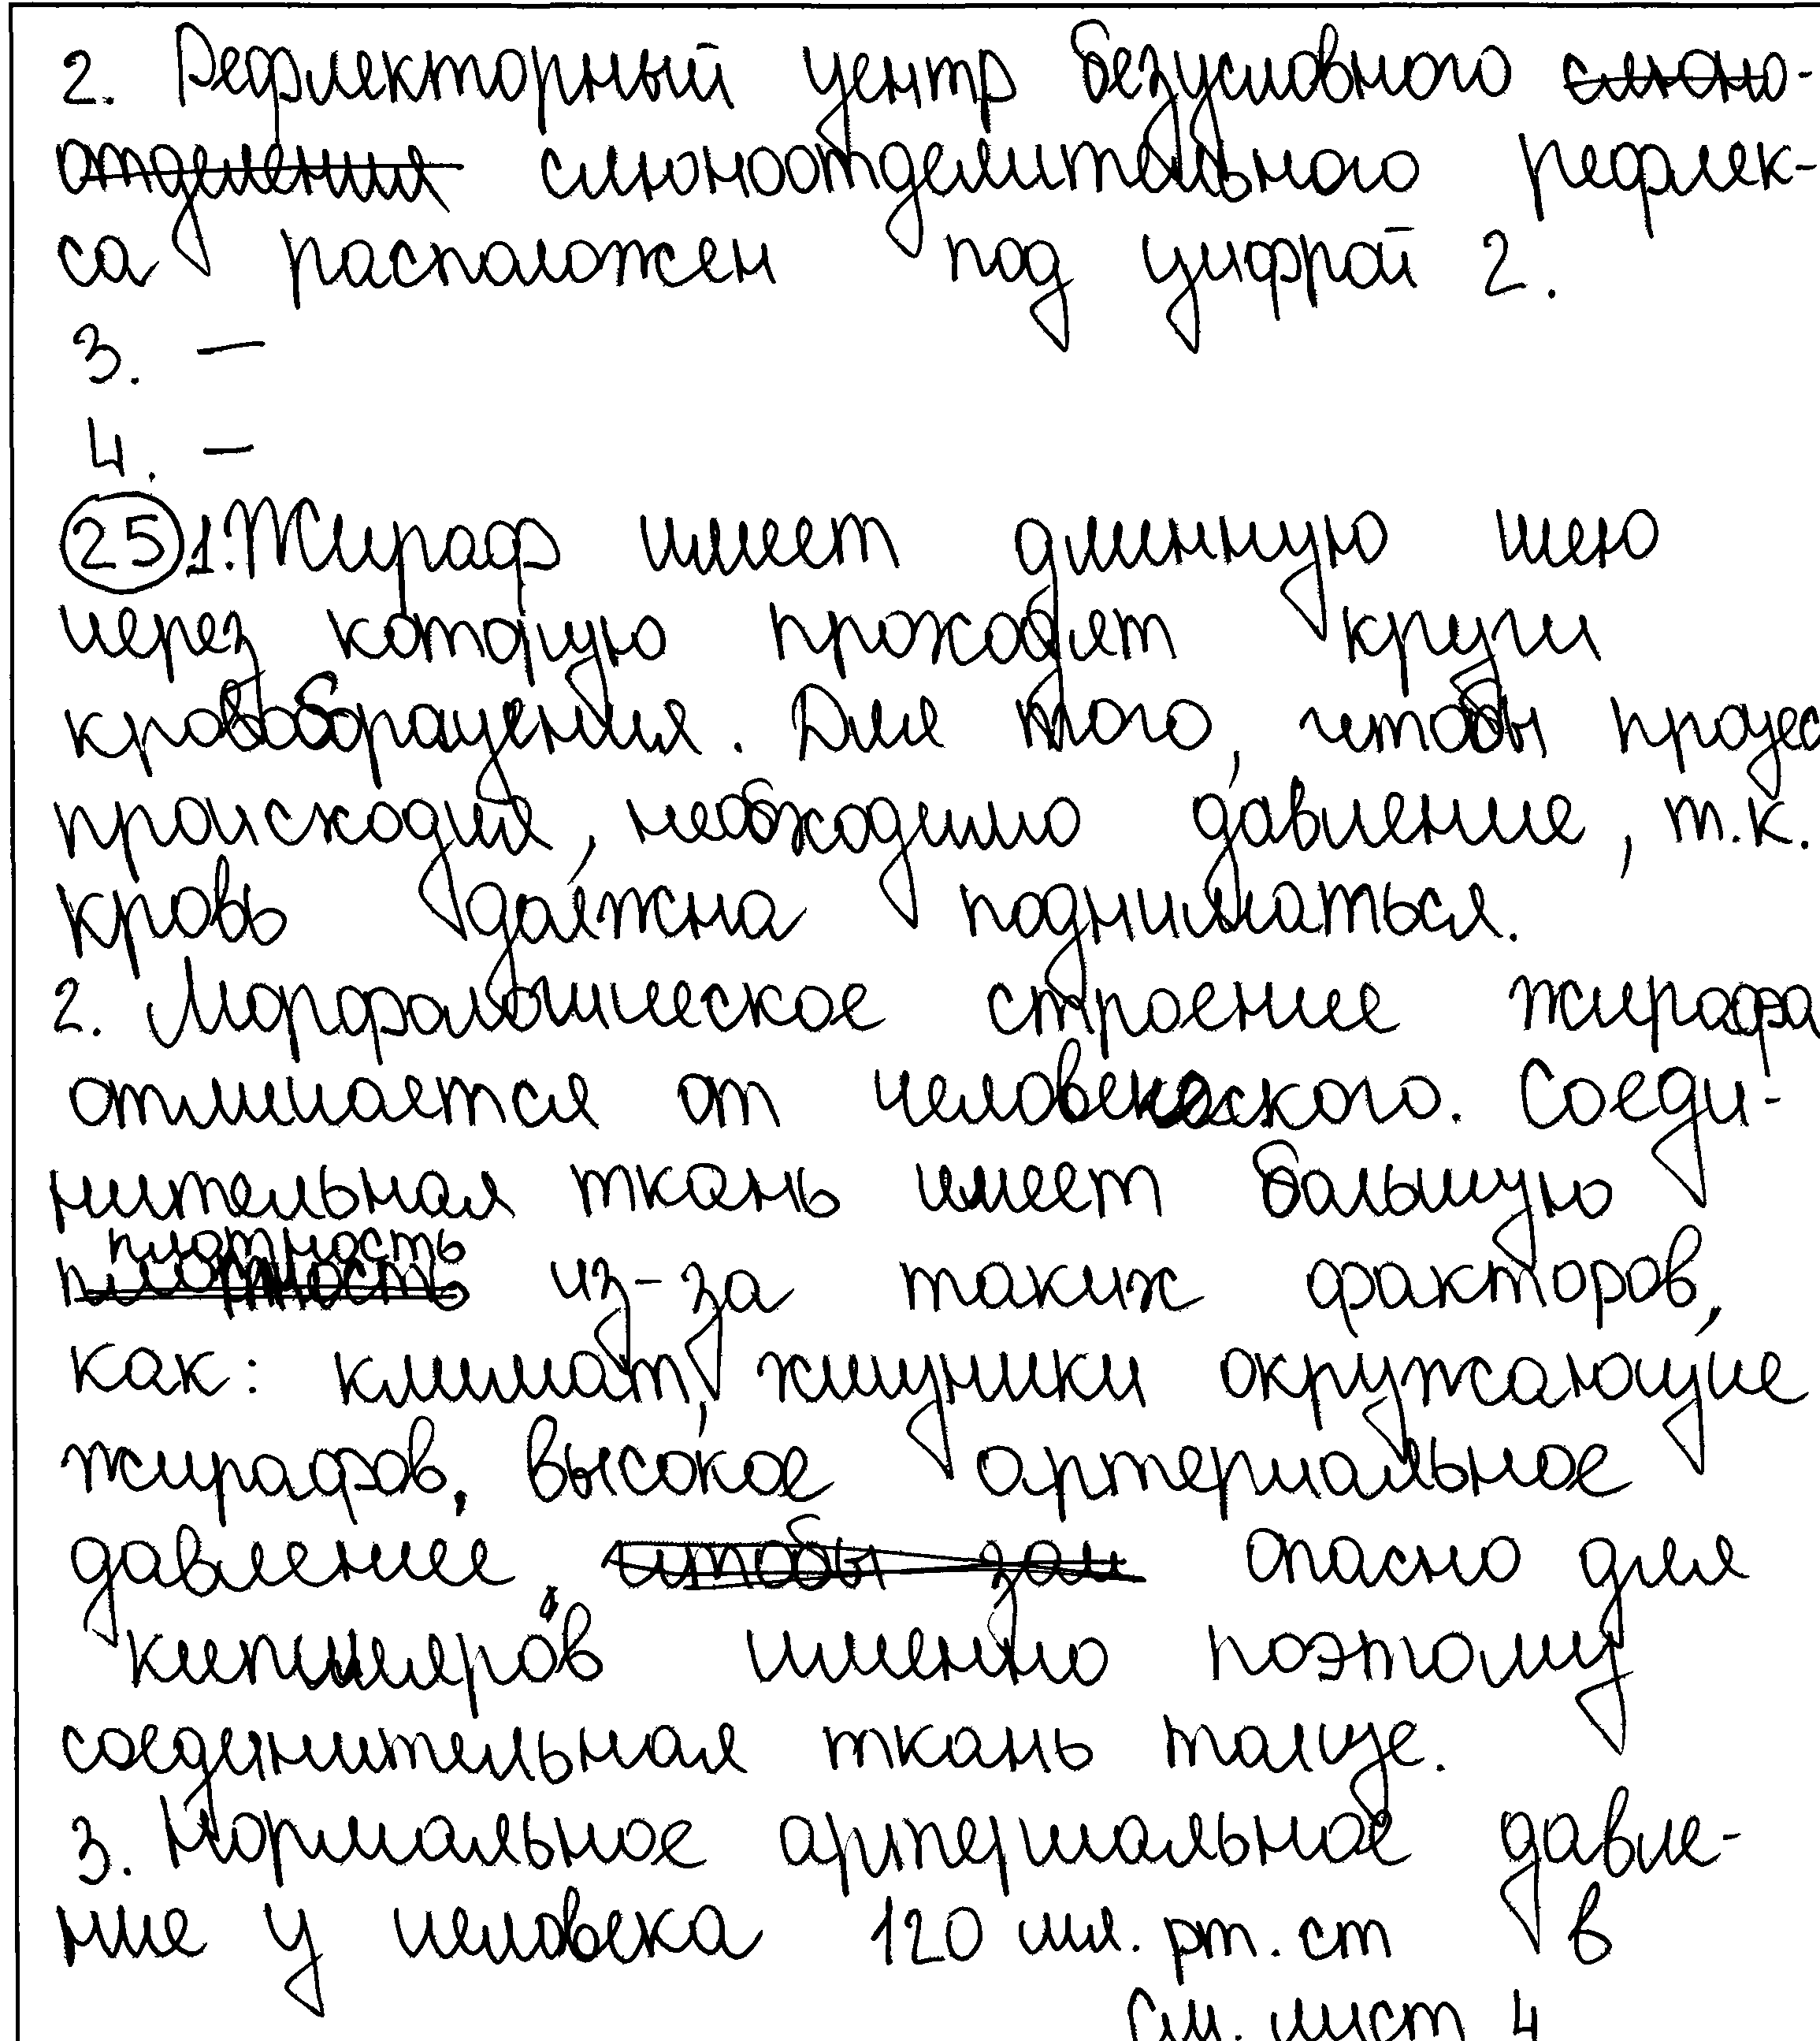 2. Рефлекторный центр безусловного слюно-
отделения слюноотделительного рефлек-
са расположен под цифрой 2.
3. —
4. —
25 1. Жираф имеет длинную шею
через которую проходят круги
кровообращения. Для того, чтобы процес
происходил, необходимо давление, т.к.
кровь должна подниматься.
2. Морфологическое строение жирафа
отличается от человеческого. Соеди-
нительная ткань имеет большую
плотность
плотность из-за таких факторов,
как: климат, хищники окружающие
жирафов, высокое артериальное
давление. чтобы зам опасно для
кипиляров именно поэтому
соединительная ткань толще.
3. Нормальное артериальное давле-
ние у человека 120 мл. рт. ст в
См. лист 4